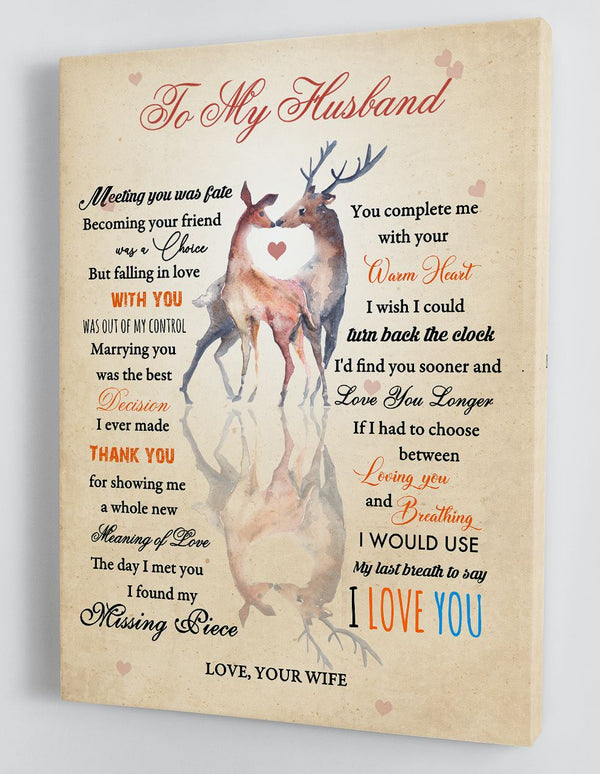 To My Husband
Meeting you was fate
Becoming your friend
was a Choice
But falling in love
WITH YOU
WAS OUT OF MY CONTROL
Marrying you
was the best
Decision
I ever made
THANK YOU
for showing me
a whole new
Meaning of Love
The day I met you
I found my
Missing Piece
You complete me
with your
Warm Heart
I wish I could
turn back the clock
I'd find you sooner and
Love You Longer
If I had to choose
between
Loving you
and Breathing
I WOULD USE
My last breath to say
I LOVE YOU
LOVE, YOUR WIFE